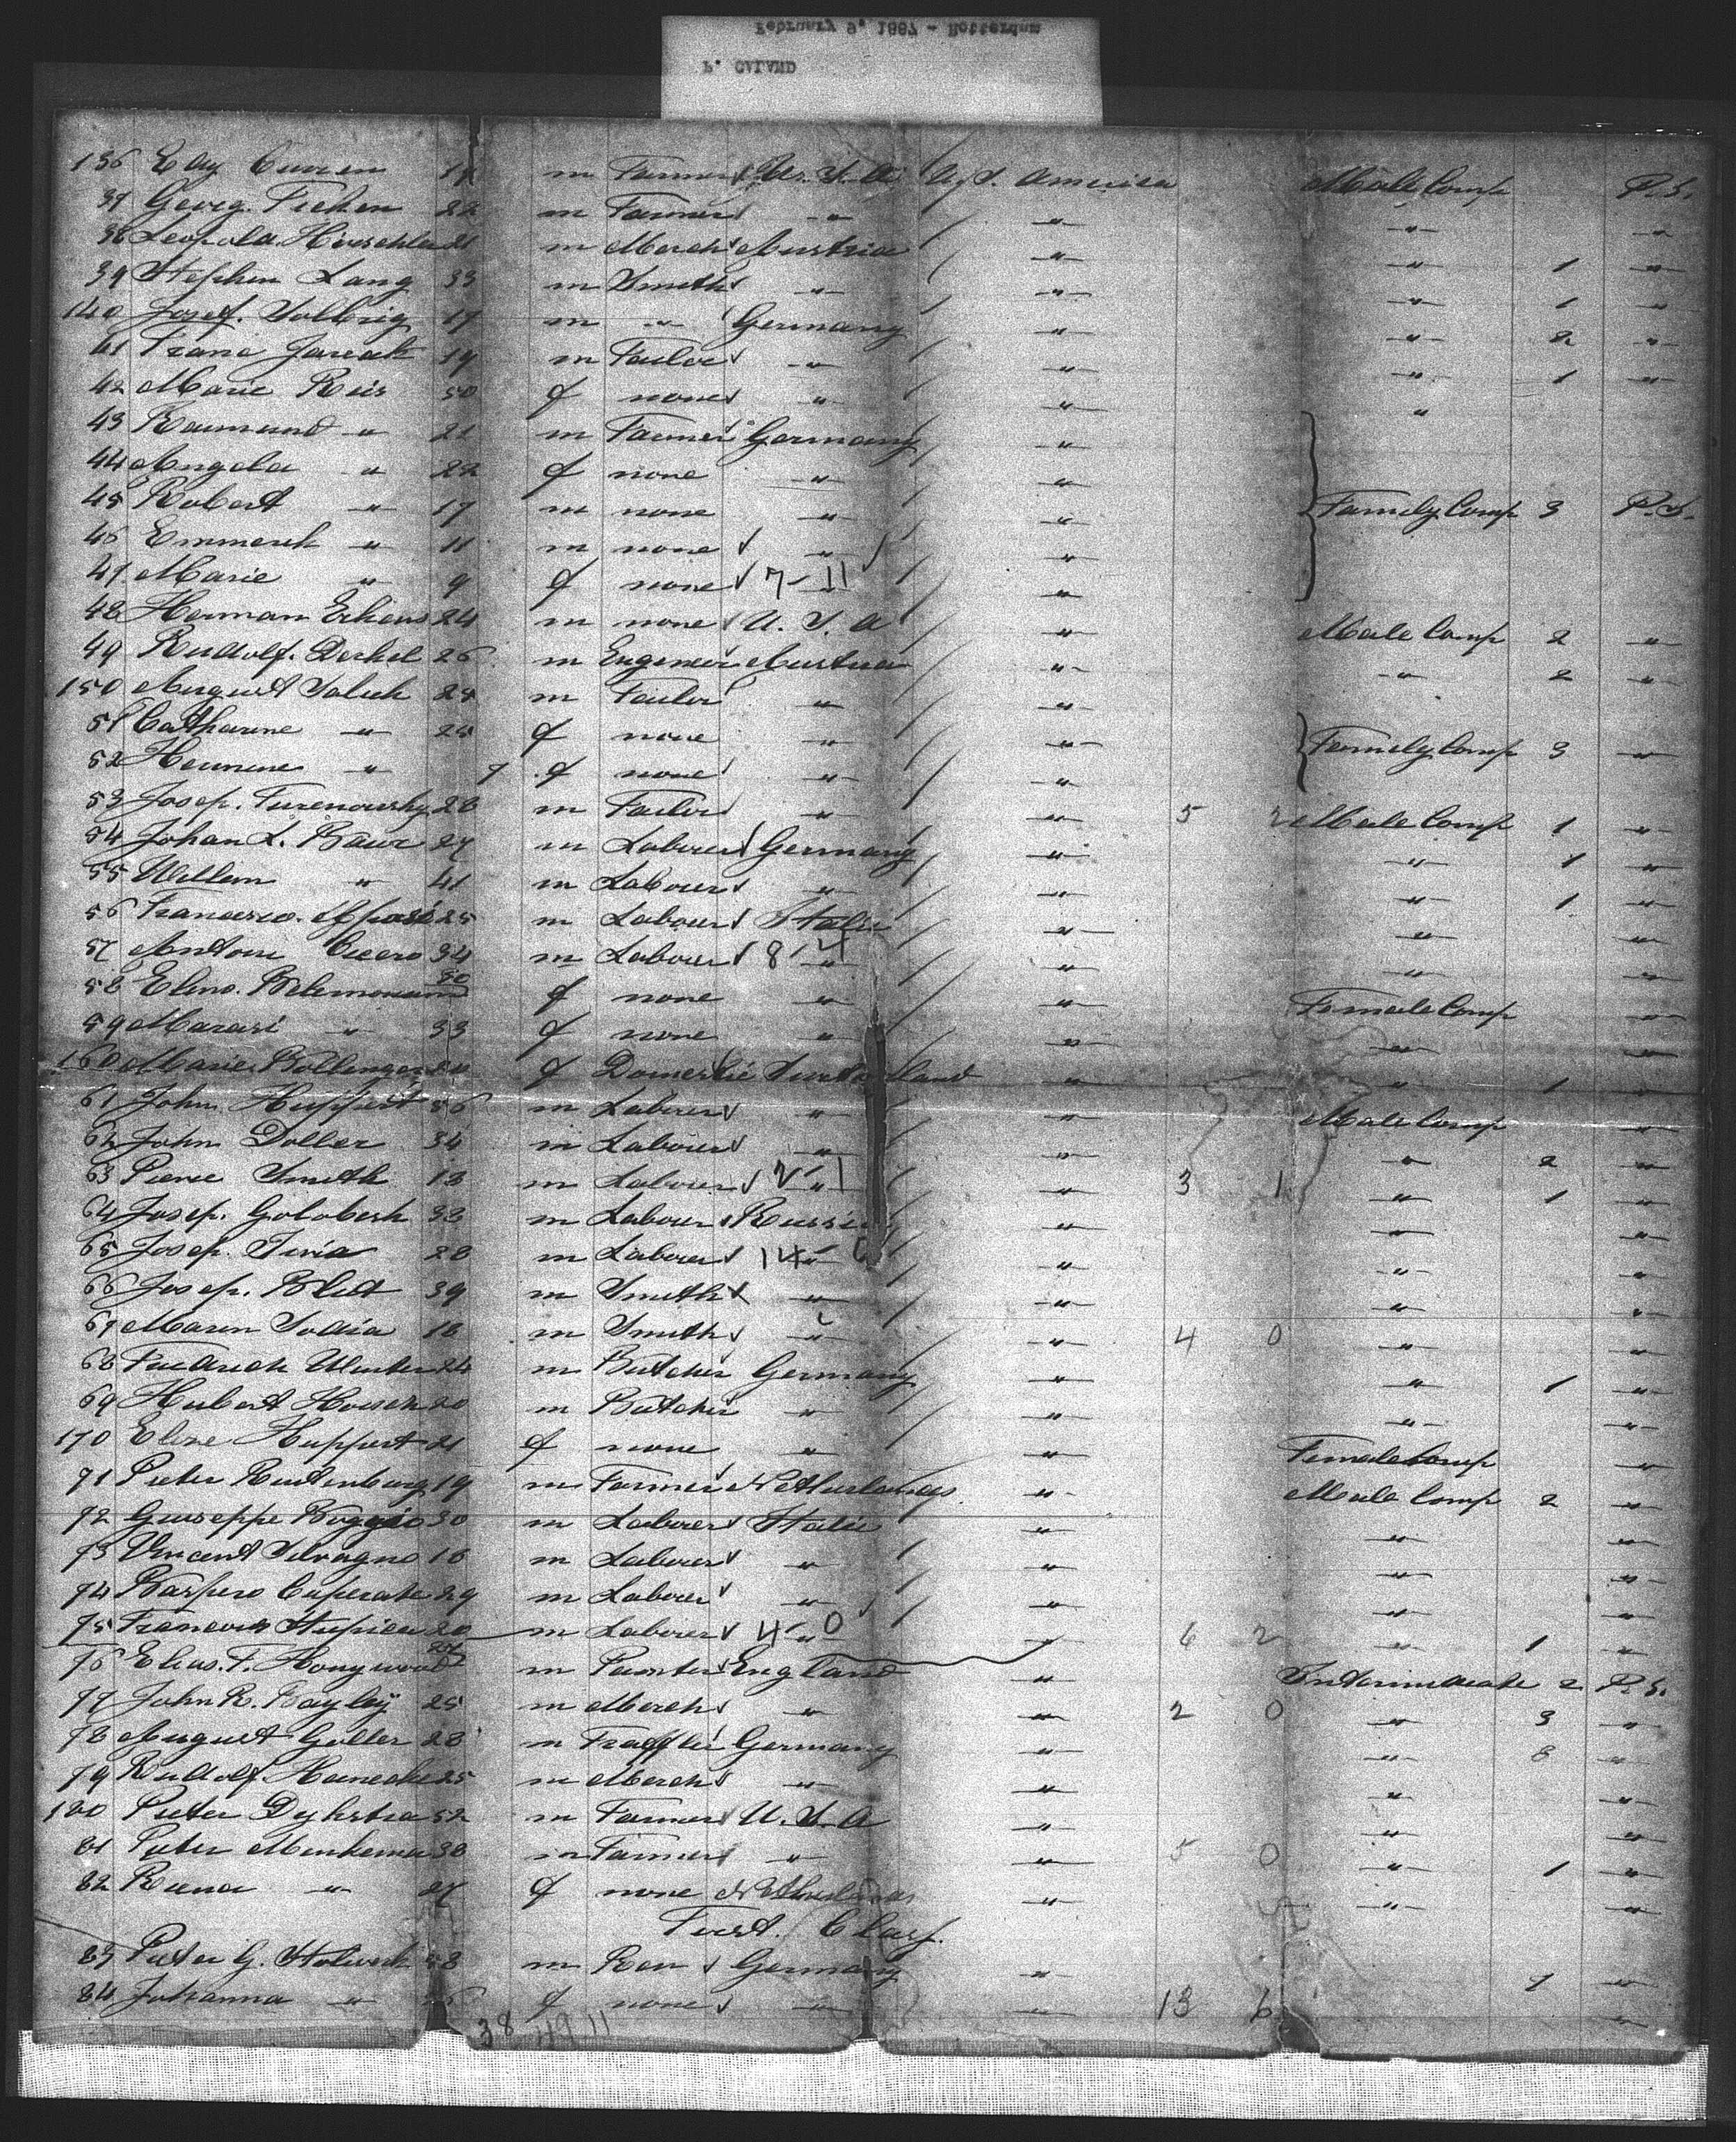 February 9, 1887 - Rotterdam
P. CALAND
136 Edy Curren m Farmer U.S.A. U.S. America Male Comp P.S.
37 Georg. Tieken 22 m Farmer " " " "
38 Leopold. Hirschler 21 m Merch Austria " " 1 "
39 Stephen Lang 33 m Smith " " " 1 "
140 Josef. Solbrig 17 m " Germany " " 2 "
41 Franc 19 m Tailor " " " 1 "
42 Marie Reis 50 f none " " "
43 Raimund " 21 m Farmer Germany "
44 Angela " 22 f none " "
45 Robert " 17 m none " " Family Comp 3 P.S.
46 Emmerich " 11 m none " "
47 Marie " 9 f none 7-11 "
48 Herman Erkens 24 m none U.S.A " Male Comp 2 "
49 Rudolf. Deckel 26 m Engeneer Austria " " 2 "
150 August Salich 24 m Tailor " "
51 Catharine " 25 f none " " Family Comp 3 "
52 Hermine " 9 f none " "
53 Josep. 28 m Tailor " " 5 2 Male Comp 1 "
54 Johan L. Baur 27 m Laborer Germany " " 1 "
55 Willem " 41 m Labourer " " " 1 "
56 Francesco. 25 m Labourer Italie " " "
57 Antoni Cicero 34 m Labourer 8-4 " " " "
58 Elena. 50 f none " " Female Comp "
59 " 33 f none " " " "
160 Marie Bollinger 20 f Domestic Switserland " " 1 "
61 John Huppert 56 m Laborer " " Male Comp "
62 John Doller 34 m Labourer " " " 2 "
63 Pierre Smith 18 m Laborer 2-1 " " 3 1 " 1 "
64 Josep. Golobesk 33 m Labourer Russia " " "
65 Josep. 28 m Laborer 14 " " " "
66 Josep. Blut 39 m Smith " " " "
67 18 m Smith " " 4 0 " "
68 Friedrich Winter 24 m Butcher Germany " " 1 "
69 Hubert Hoesch 20 m Butcher " " " "
170 Elise Huppert 21 f none " " Female Comp "
71 Pieter Ruitenburg 19 m Farmer Netherlands " Male Comp 2 "
72 Guiseppe Boggio 30 m Laborer Italie " " "
73 Vincent Selvagno 18 m Laborer " " " "
74 29 m Laborer " " " "
75 20 m Laborer 4-0 " " 6 2 " 1 "
76 Elias. F. Honywood 27 m Painter England " Intermediate 2 P.S.
77 John R. Bayley 25 m Merch " " 2 0 " 3 "
78 August Goller 28 m Germany " " 8 "
79 Rudolf. Heinecke 25 m Merch " " "
180 Pieter Dykstra 52 m Farmer U.S.A " " "
81 Pieter Menkema 38 m Farmer " " 5 0 " 1 "
82 " 27 f none Netherlands " " "
First. Class.
83 Pieter G. 58 m Germany " 1 "
84 Johanna " f none " " 13 6 "
38 49 11